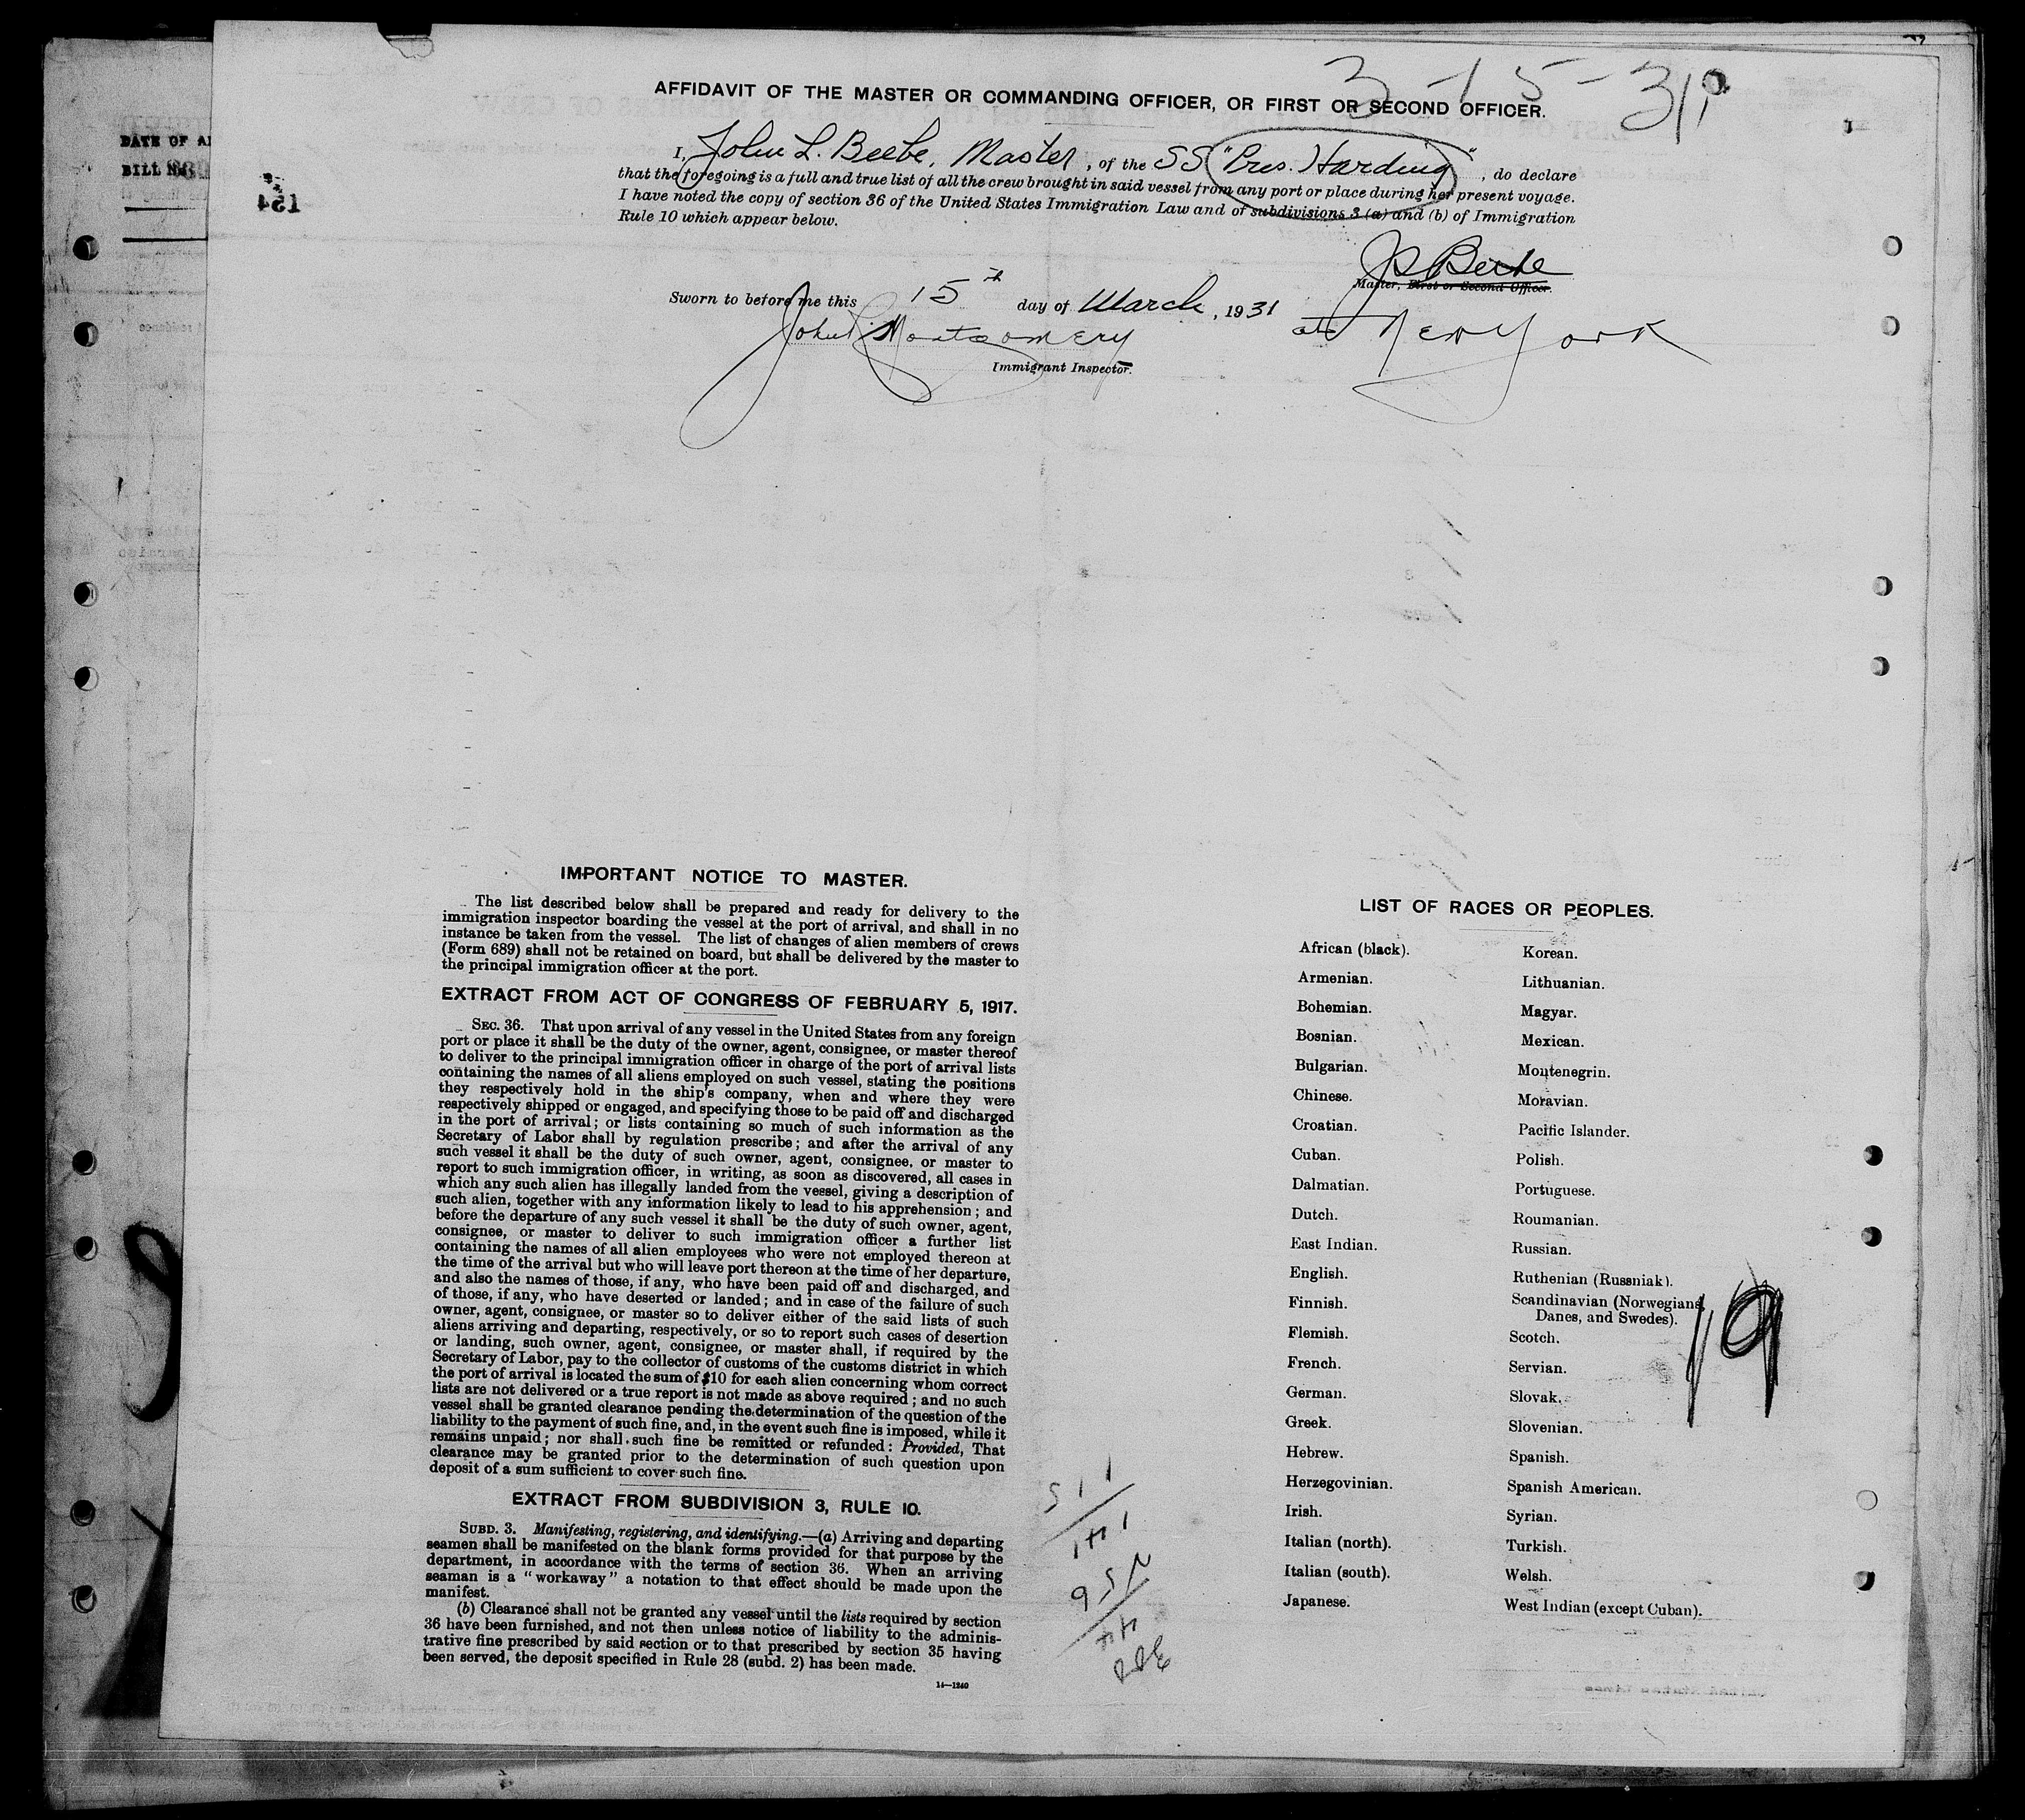 3-15-31
AFFIDAVIT OF THE MASTER OR COMMANDING OFFICER, OR FIRST OR SECOND OFFICER.
I, John L. Beebe, Master, of the SS "Pres. Harding", do declare
that the foregoing is a full and true list of all the crew brought in said vessel from any port or place during her present voyage.
I have noted the copy of section 36 of the United States Immigration Law and of subdivisions 3 (a) and (b) of Immigration
Rule 10 which appear below.
Beebe
Master, First or Second Officer.
Sworn to before me this 15th day of March, 1931 at New York
John Montgomery
Immigrant Inspector.
DATE OF
BILL
154
IMPORTANT NOTICE TO MASTER.
The list described below shall be prepared and ready for delivery to the
immigration inspector boarding the vessel at the port of arrival, and shall in no
instance be taken from the vessel. The list of changes of alien members of crews
(Form 689) shall not be retained on board, but shall be delivered by the master to
the principal immigration officer at the port.
EXTRACT FROM ACT OF CONGRESS OF FEBRUARY 5, 1917.
SEC. 36. That upon arrival of any vessel in the United States from any foreign
port or place it shall be the duty of the owner, agent, consignee, or master thereof
to deliver to the principal immigration officer in charge of the port of arrival lists
containing the names of all aliens employed on such vessel, stating the positions
they respectively hold in the ship's company, when and where they were
respectively shipped or engaged, and specifying those to be paid off and discharged
in the port of arrival; or lists containing so much of such information as the
Secretary of Labor shall by regulation prescribe; and after the arrival of any
such vessel it shall be the duty of such owner, agent, consignee, or master to
report to such immigration officer, in writing, as soon as discovered, all cases in
which any such alien has illegally landed from the vessel, giving a description of
such alien, together with any information likely to lead to his apprehension; and
before the departure of any such vessel it shall be the duty of such owner, agent,
consignee, or master to deliver to such immigration officer a further list
containing the names of all alien employees who were not employed thereon at
the time of the arrival but who will leave port thereon at the time of her departure,
and also the names of those, if any, who have been paid off and discharged, and
of those, if any, who have deserted or landed; and in case of the failure of such
owner, agent, consignee, or master so to deliver either of the said lists of such
aliens arriving and departing, respectively, or so to report such cases of desertion
or landing, such owner, agent, consignee, or master shall, if required by the
Secretary of Labor, pay to the collector of customs of the customs district in which
the port of arrival is located the sum of $10 for each alien concerning whom correct
lists are not delivered or a true report is not made as above required; and no such
vessel shall be granted clearance pending the determination of the question of the
liability to the payment of such fine, and, in the event such fine is imposed, while it
remains unpaid; nor shall such fine be remitted or refunded: Provided, That
clearance may be granted prior to the determination of such question upon
deposit of a sum sufficient to cover such fine.
EXTRACT FROM SUBDIVISION 3, RULE 10.
SUBD. 3. Manifesting, registering, and identifying.—(a) Arriving and departing
seamen shall be manifested on the blank forms provided for that purpose by the
department, in accordance with the terms of section 36. When an arriving
seaman is a "workaway" a notation to that effect should be made upon the
manifest.
(b) Clearance shall not be granted any vessel until the lists required by section
36 have been furnished, and not then unless notice of liability to the adminis-
trative fine prescribed by said section or to that prescribed by section 35 having
been served, the deposit specified in Rule 28 (subd. 2) has been made.
14—1240
LIST OF RACES OR PEOPLES.
African (black).
Armenian.
Bohemian.
Bosnian.
Bulgarian.
Chinese.
Croatian.
Cuban.
Dalmatian.
Dutch.
East Indian.
English.
Finnish.
Flemish.
French.
German.
Greek.
Hebrew.
Herzegovinian.
Irish.
Italian (north).
Italian (south).
Japanese.
Korean.
Lithuanian.
Magyar.
Mexican.
Montenegrin.
Moravian.
Pacific Islander.
Polish.
Portuguese.
Roumanian.
Russian.
Ruthenian (Russniak).
Scandinavian (Norwegians,
Danes, and Swedes).
Scotch.
Servian.
Slovak.
Slovenian.
Spanish.
Spanish American.
Syrian.
Turkish.
Welsh.
West Indian (except Cuban).
19